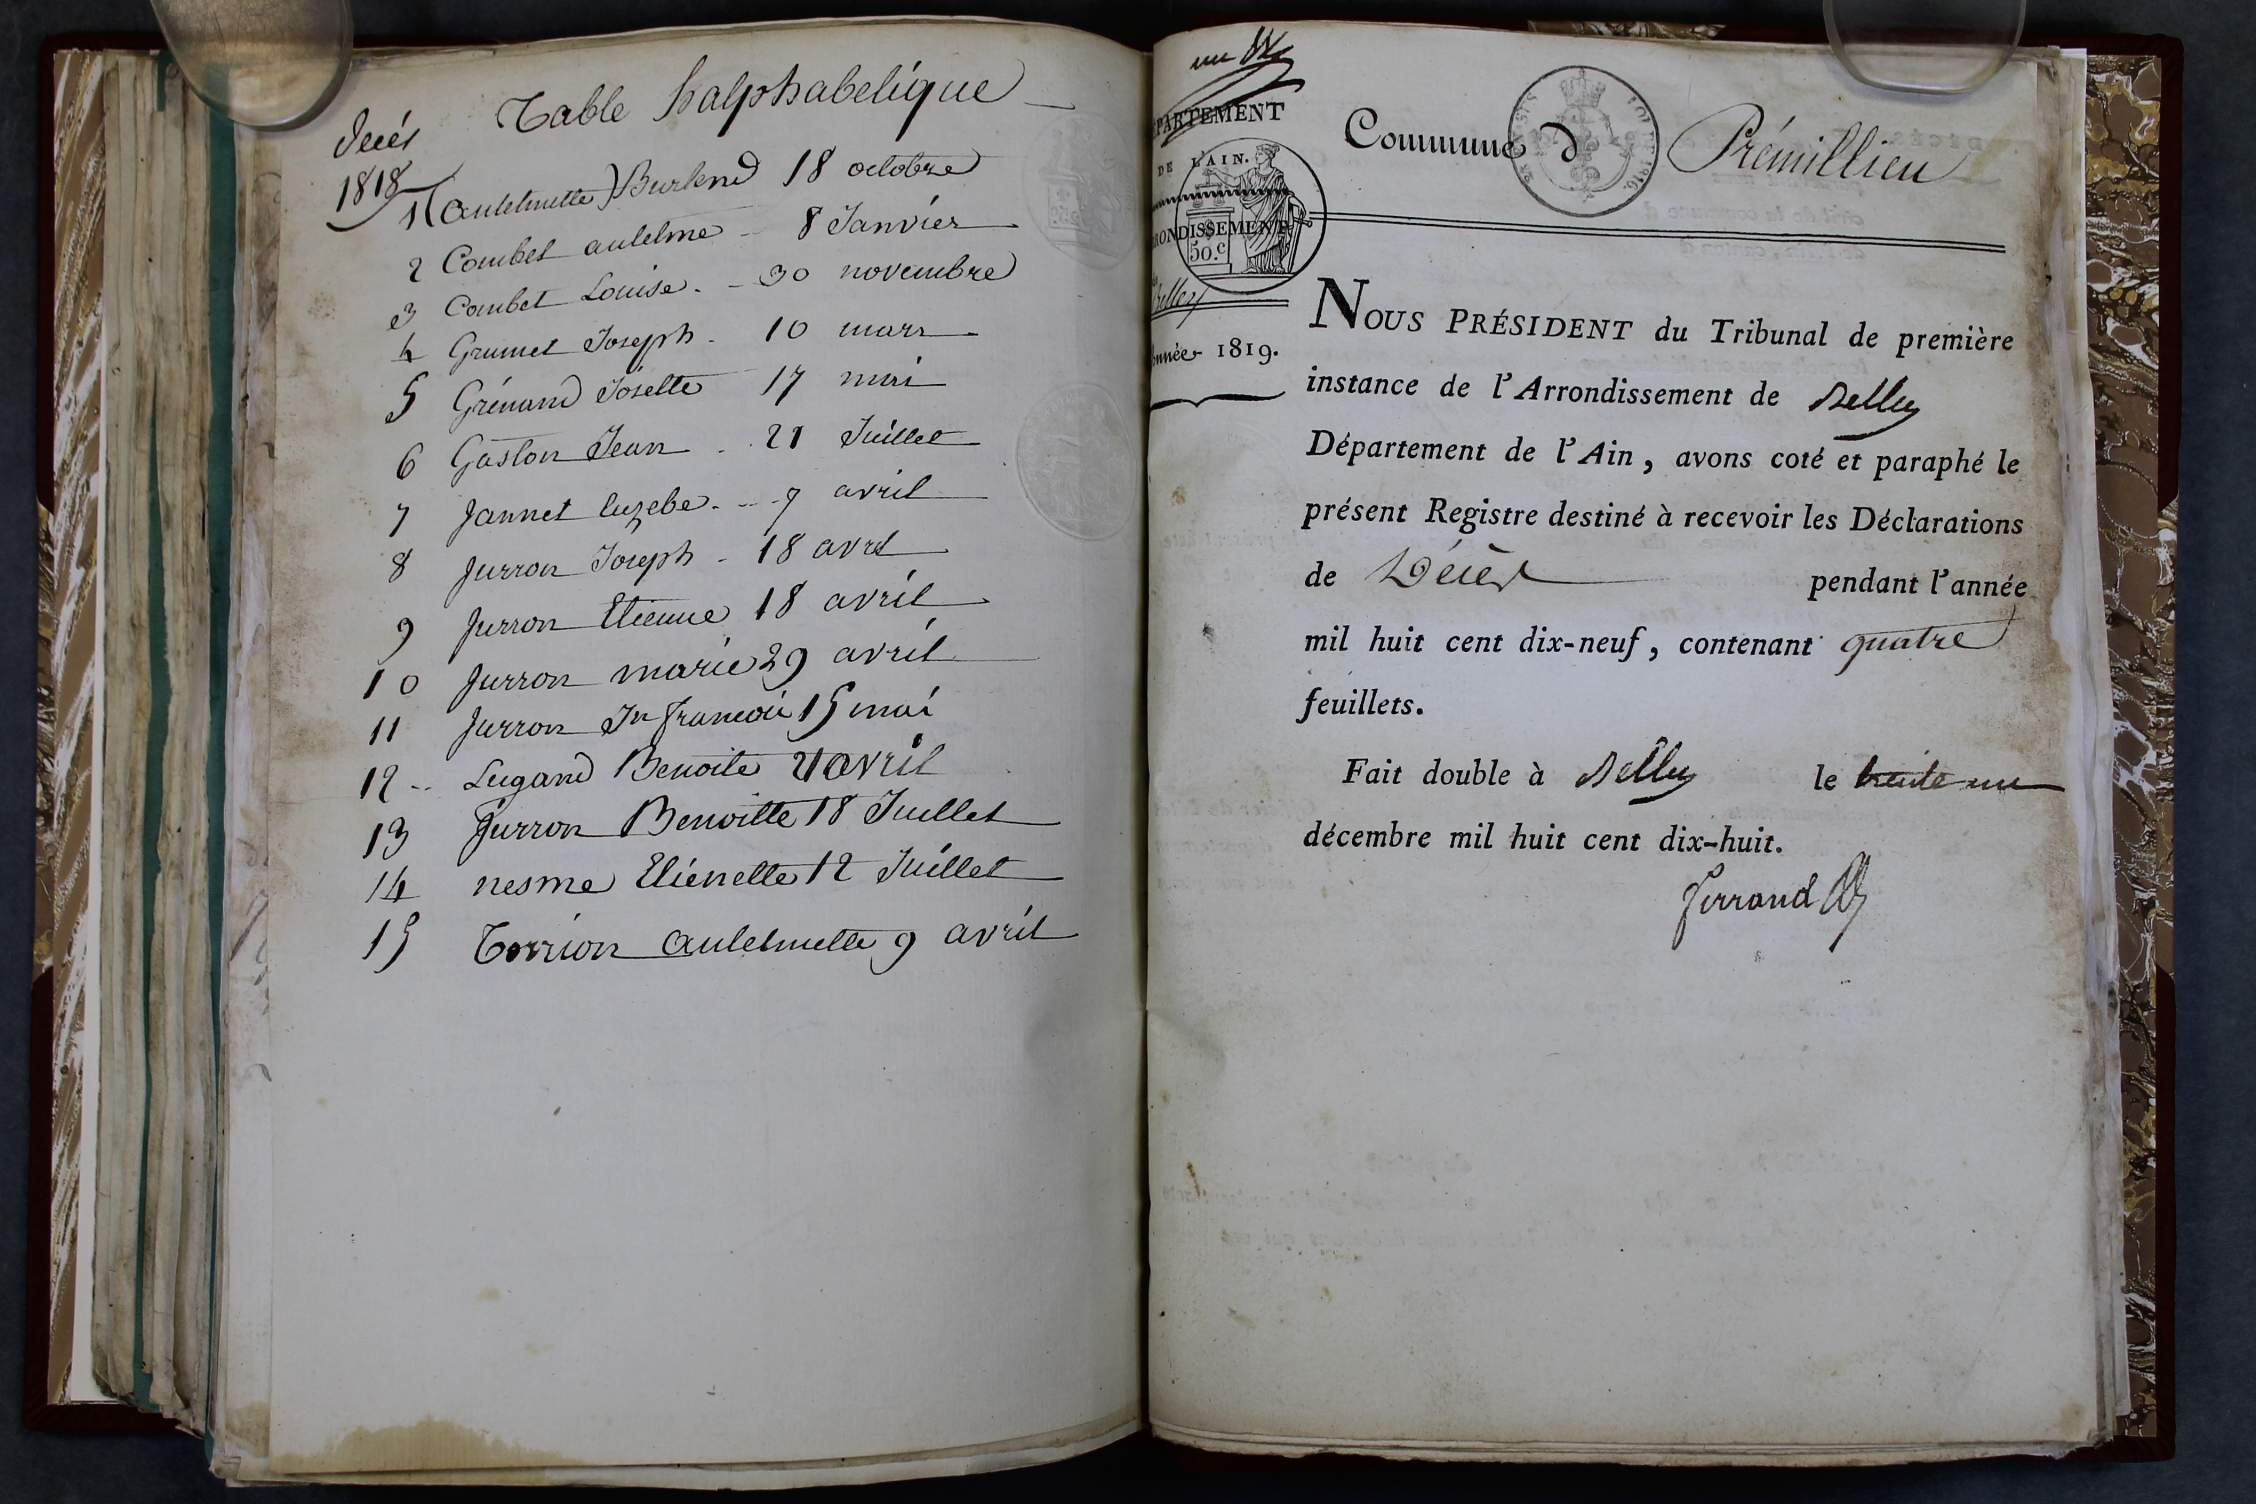 Table halphabetique
decés
1818
1 (Antelmette) Burlend 18 octobre
2 Combet antelme - 8 Janvier
3 Combet Louise. - 30 novembre
4 Grumet Joseph - 10 mars
5 Grénand Josette 17 mai
6 Gaston Jean - 21 Juillet
7 Jannet Euzebe. - 7 avril
8 Jurron Joseph - 18 avril
9 Jurron Etienne 18 avril
10 Jurron marie 29 avril
11 Jurron Jn francois 15 mai
12 Lugand Benoite 21 avril
13 Jurron Benoitte 18 Juillet
14 nesme Etienette 12 Juillet
15 Torrion antelmette 9 avril
un
PARTEMENT
DE L'AIN.
RONDISSEMENT
50.c
Belley
Année 1819.
Commune d Prémillieu
NOUS PRÉSIDENT du Tribunal de première
instance de l'Arrondissement de Belley
Département de l'Ain, avons coté et paraphé le
présent Registre destiné à recevoir les Déclarations
de Décès pendant l'année
mil huit cent dix-neuf, contenant quatre
feuillets.
Fait double à Belley le trente un
décembre mil huit cent dix-huit.
Ferrand